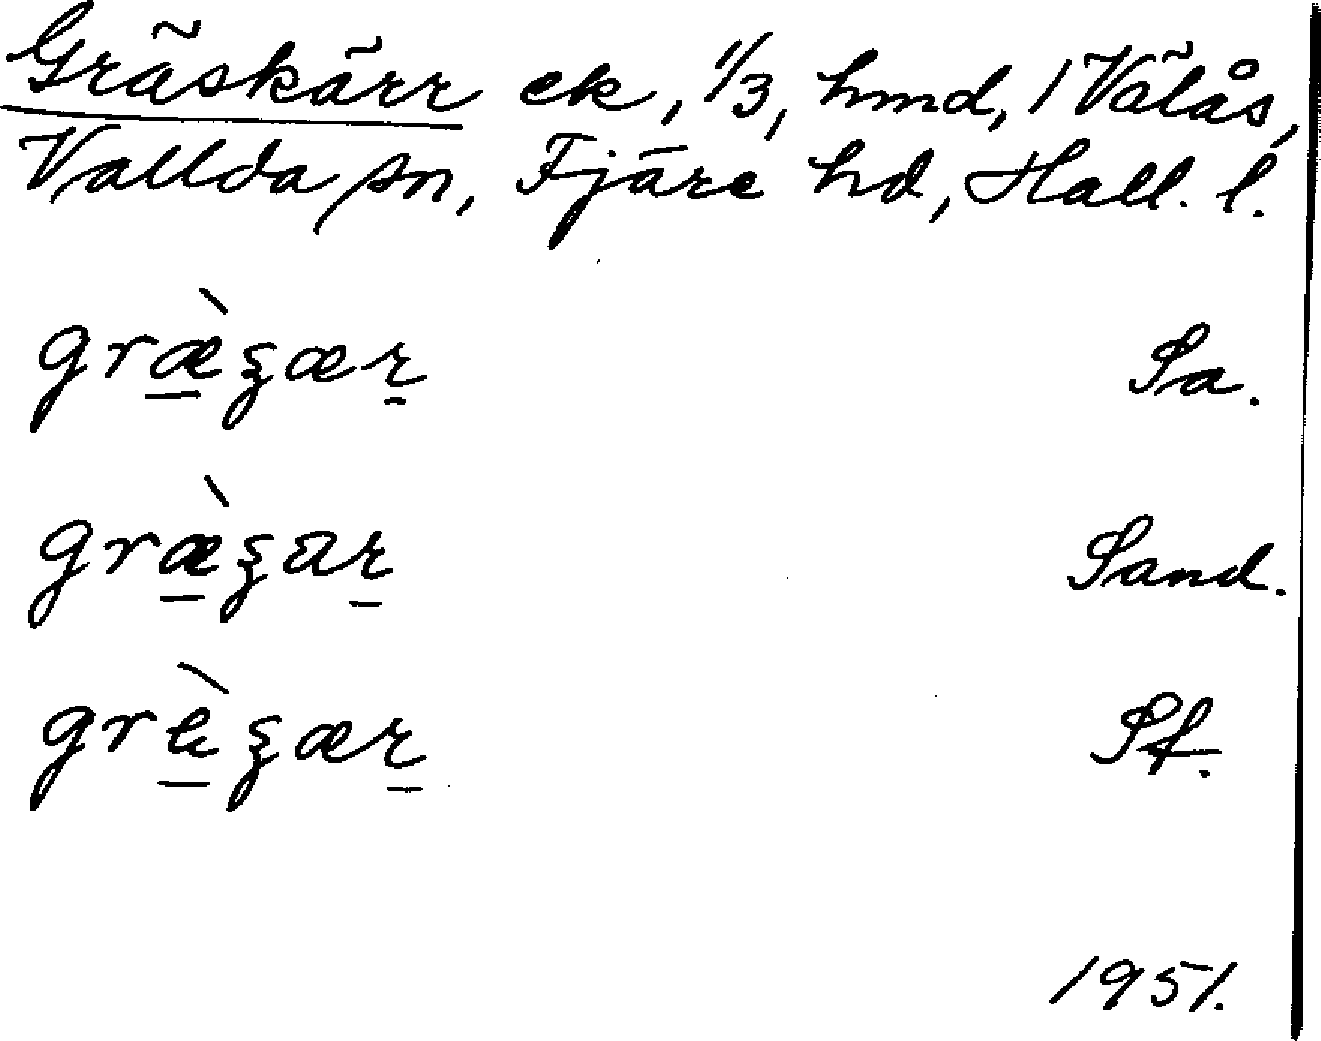 Gräskärr ek, 1/3, hmd, 1 Välås,
Vallda sn, Fjäre hd, Hall. l.
græ̠̀ʒær̠ Sa.
græ̠̀ʒar̠ Sand.
grè̠ʒær̠ Sf.
1951.